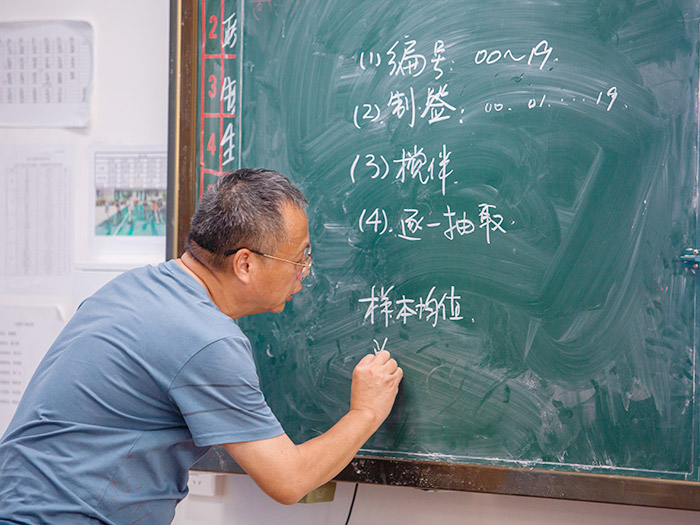 2
3
4
(1) 编号: 00~19.
(2). 制签: 00. 01. ... 19.
(3) 搅拌.
(4). 逐一抽取.
样本均值.